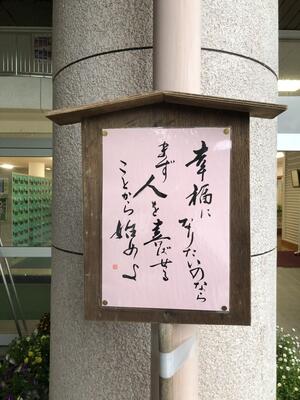 幸福に
なりたいのなら
まず人を喜ばせる
ことから始めよ